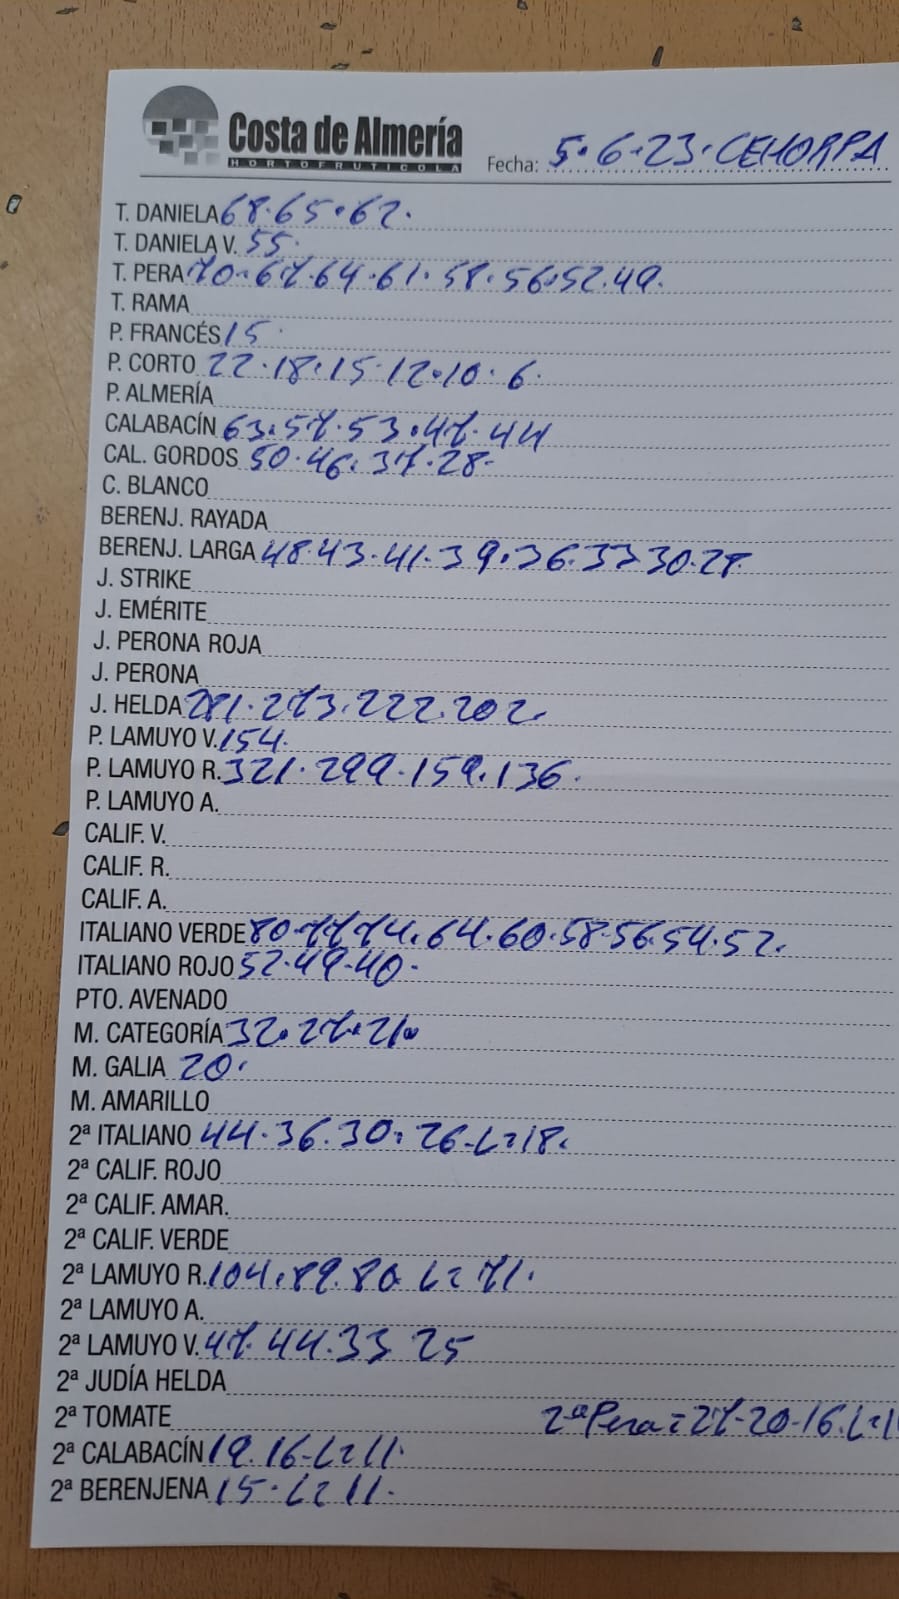 Costa de Almería
HORTOFRUTICOLA
Fecha: 5.6.23. CEHORPA
T. DANIELA 68.65.62.
T. DANIELA V. 55.
T. PERA 70.67.64.61.58.56.52.49.
T. RAMA
P. FRANCÉS 15.
P. CORTO 22.18.15.12.10.6.
P. ALMERÍA
CALABACÍN 63.57.53.47.44
CAL. GORDOS 50.46.37.28.
C. BLANCO
BERENJ. RAYADA
BERENJ. LARGA 48.43.41.39.36.33.30.28.
J. STRIKE
J. EMÉRITE
J. PERONA ROJA
J. PERONA
J. HELDA 273.222.202.
P. LAMUYO V. 154.
P. LAMUYO R. 321.299.159.136.
P. LAMUYO A.
CALIF. V.
CALIF. R.
CALIF. A.
ITALIANO VERDE 80.77.74.64.60.58.56.54.52.
ITALIANO ROJO 52.49.40.
PTO. AVENADO
M. CATEGORÍA 32.27.21.
M. GALIA 20.
M. AMARILLO
2ª ITALIANO 44.36.30.26.L=18.
2ª CALIF. ROJO
2ª CALIF. AMAR.
2ª CALIF. VERDE
2ª LAMUYO R. 104.89.80 L=71.
2ª LAMUYO A.
2ª LAMUYO V. 47.44.33 25
2ª JUDÍA HELDA
2ª TOMATE 2ª Pera=27-20-16.L=
2ª CALABACÍN 19.16-L=11.
2ª BERENJENA 15.L=11.